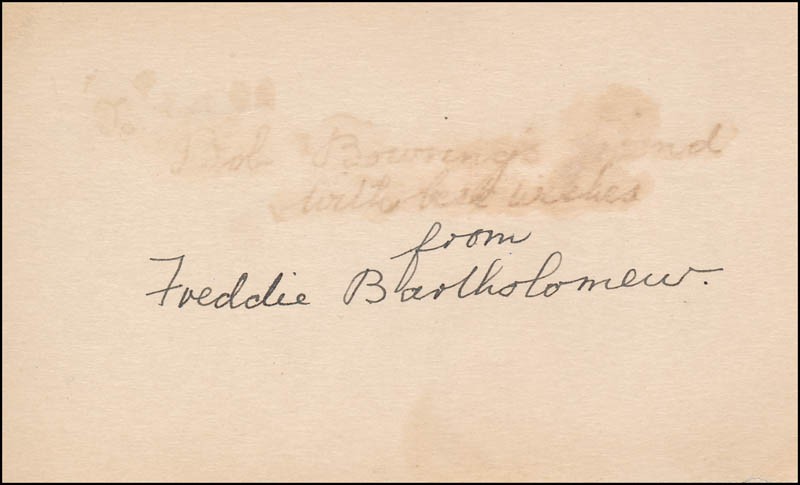 To
Bob Bowning's friend
with best wishes
from
Freddie Bartholomew.